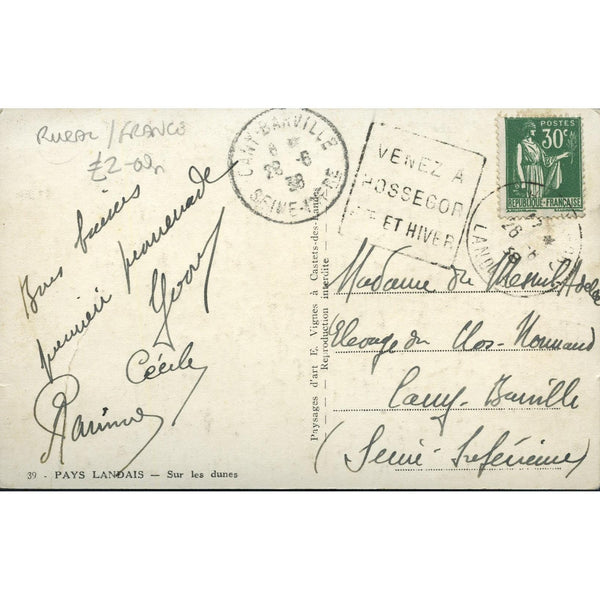 RURAL / FRANCE
£2-00
CANY-BARVILLE
28-6
38
SEINE-INFRE
VENEZ A
HOSSEGOR
ETE ET HIVER
POSTES
30c
REPUBLIQUE-FRANÇAISE
28
38
LANDES
Bons baisers
première promenade
Yvonne
Cécile
Paysages d'art E. Vignes à Castets-des-Landes
— Reproduction interdite —
Madame du Mesnil-Adelée
Elevage du Clos-Normand
Cany-Barville
(Seine Inférieure)
39 - PAYS LANDAIS — Sur les dunes